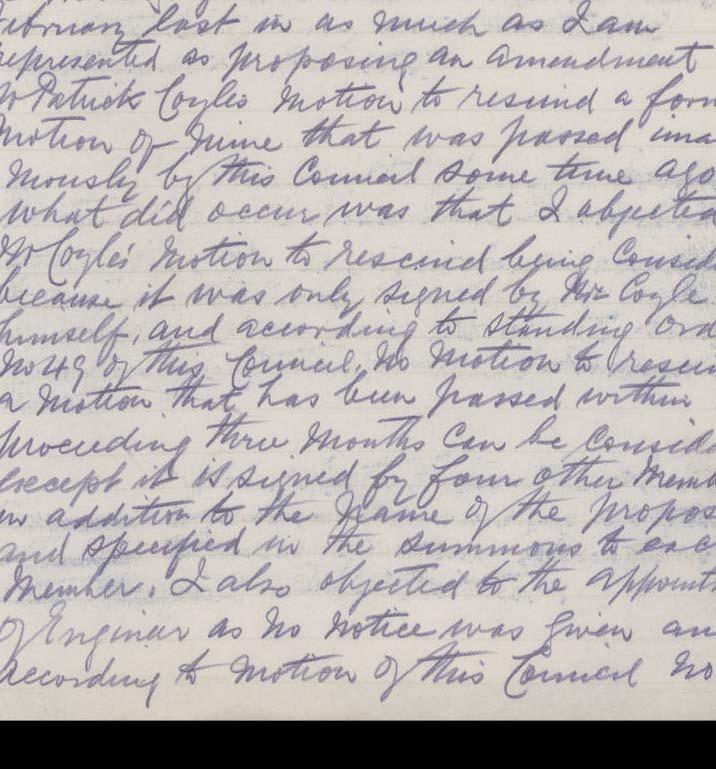 ebruary last in as much as I am
epresented as proposing an amendment
to Patrick Coyles Motion to rescind a form
Motion of Mine that was passed una
mously by this Council some time ago
what did occur was that I objected
Mr Coyle's Motion to rescind being Consid
because it was only signed by Mr Coyle
himself, and according to Standing Ord
No 49 of this Council, No Motion to rescin
a Motion that has been passed within
proceeding three Months Can be Conside
except it is signed by four other Memb
in addition to the Name of the propos
and specified in the summons to eac
Member. I also objected to the appoint
of Engineer as No Notice was given an
according to Motion of this Council No